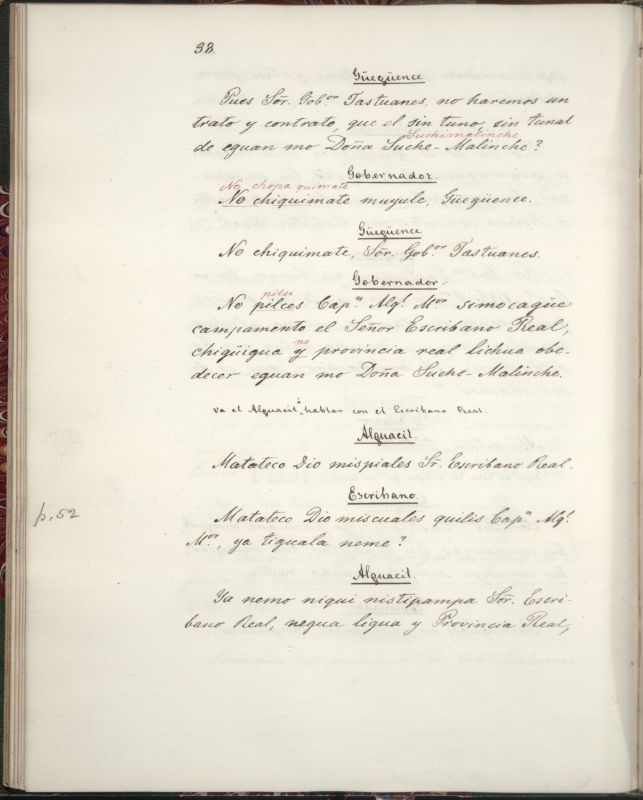 38.
Güegüence
Pues Sõr. Gob.or Tastuanes, no haremos un
trato y contrato, que el sin tuno, sin tunal
Suchimalinche
de eguan mo Doña Suche-Malinche?
Gobernador.
No chopa quimate
No chiquimate muyule, Güegüence.
Güegüence
No chiquimate, Sõr. Gob.or Tastuanes.
Gobernador.
pilse
No pilces Cap.n Alg.l M.or simocagüe
campamento el Señor Escribano Real,
no
chigüigua y provincia real lichua obe-
decer eguan mo Doña Suche-Malinche.
va el Alguacil á hablar con el Escribano Real.
Alguacil.
Matateco Dio mispiales Sr. Escribano Real.
Escribano
p. 52
Matateco Dio miscuales quilis Cap.n Alg.l
M.or, ya tiguala neme?
Alguacil.
Ya nemo niqui nistipampa Sõr. Escri-
bano Real, negua ligua y Provincia Real,